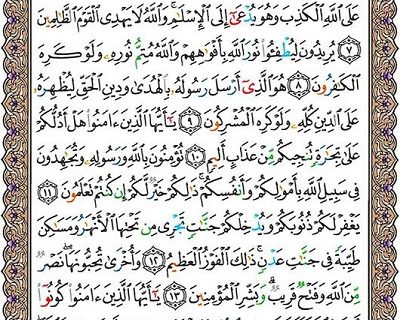 عَلَى ٱللَّهِ ٱلْكَذِبَ وَهُوَ يُدْعَىٰٓ إِلَى ٱلْإِسْلَٰمِ ۚ وَٱللَّهُ لَا يَهْدِى ٱلْقَوْمَ ٱلظَّٰلِمِينَ
٧ يُرِيدُونَ لِيُطْفِـُٔوا۟ نُورَ ٱللَّهِ بِأَفْوَٰهِهِمْ وَٱللَّهُ مُتِمُّ نُورِهِۦ وَلَوْ كَرِهَ
ٱلْكَٰفِرُونَ ٨ هُوَ ٱلَّذِىٓ أَرْسَلَ رَسُولَهُۥ بِٱلْهُدَىٰ وَدِينِ ٱلْحَقِّ لِيُظْهِرَهُۥ
عَلَى ٱلدِّينِ كُلِّهِۦ وَلَوْ كَرِهَ ٱلْمُشْرِكُونَ ٩ يَٰٓأَيُّهَا ٱلَّذِينَ ءَامَنُوا۟ هَلْ أَدُلُّكُمْ
عَلَىٰ تِجَٰرَةٍ تُنجِيكُم مِّنْ عَذَابٍ أَلِيمٍ ١٠ تُؤْمِنُونَ بِٱللَّهِ وَرَسُولِهِۦ وَتُجَٰهِدُونَ
فِى سَبِيلِ ٱللَّهِ بِأَمْوَٰلِكُمْ وَأَنفُسِكُمْ ۚ ذَٰلِكُمْ خَيْرٌ لَّكُمْ إِن كُنتُمْ تَعْلَمُونَ ١١
يَغْفِرْ لَكُمْ ذُنُوبَكُمْ وَيُدْخِلْكُمْ جَنَّٰتٍ تَجْرِى مِن تَحْتِهَا ٱلْأَنْهَٰرُ وَمَسَٰكِنَ
طَيِّبَةً فِى جَنَّٰتِ عَدْنٍ ۚ ذَٰلِكَ ٱلْفَوْزُ ٱلْعَظِيمُ ١٢ وَأُخْرَىٰ تُحِبُّونَهَا ۖ نَصْرٌ
مِّنَ ٱللَّهِ وَفَتْحٌ قَرِيبٌ ۗ وَبَشِّرِ ٱلْمُؤْمِنِينَ ١٣ يَٰٓأَيُّهَا ٱلَّذِينَ ءَامَنُوا۟ كُونُوٓا۟